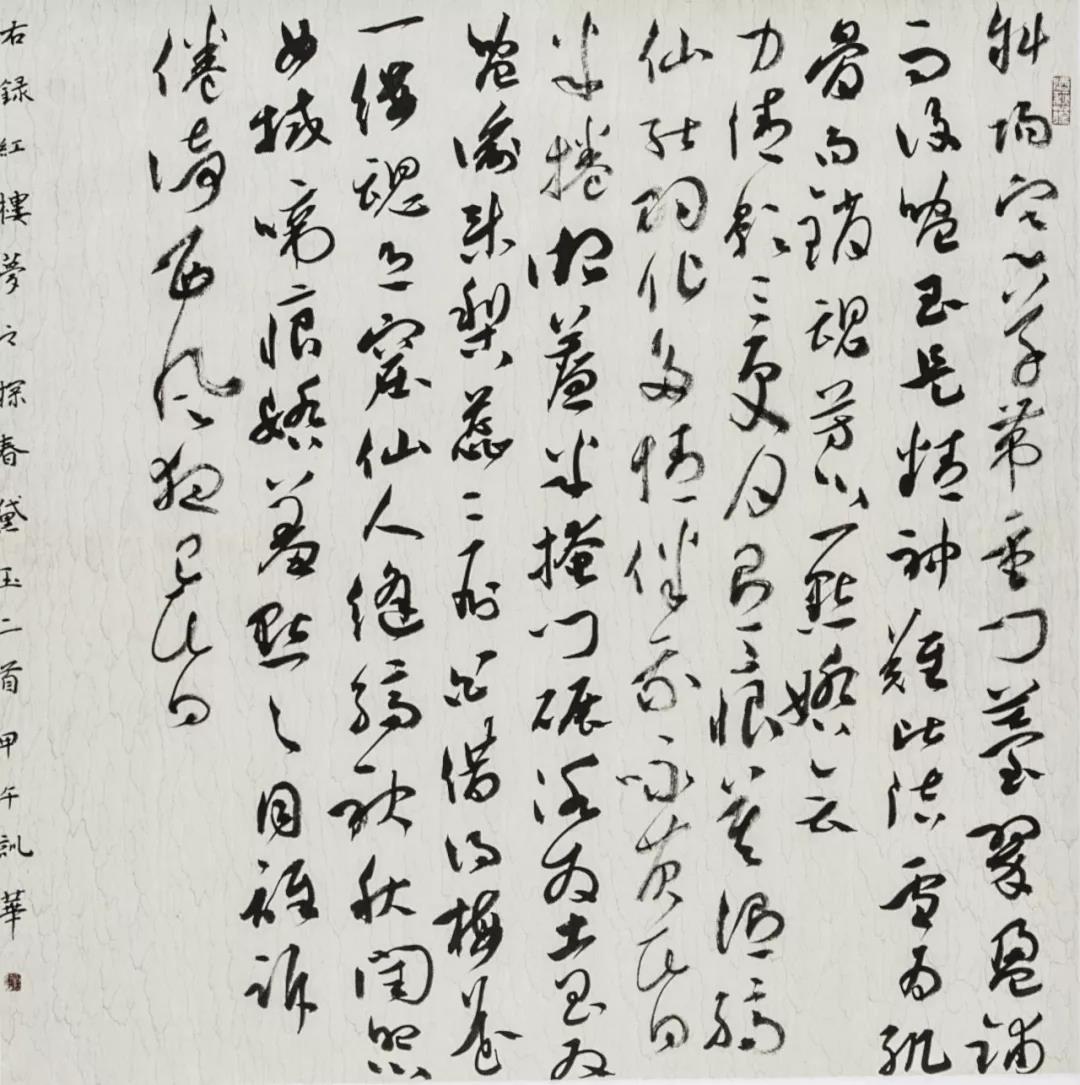 斜陽寒草帶重門苔翠盈鋪
雨後盆玉是精神難比潔雪為肌
骨易銷魂芳心一點嬌無
力倩影三更月有痕莫謂縞
仙能羽化多情伴我咏黃昏
半捲湘簾半掩門碾冰為土玉為
盆偷來梨蕊三分白借得梅花
一縷魂月窟仙人縫縞袂秋閨怨
女拭啼痕嬌羞默々同誰訴
倦倚西風夜已昏
右録紅樓夢之探春黛玉二首甲午訓華